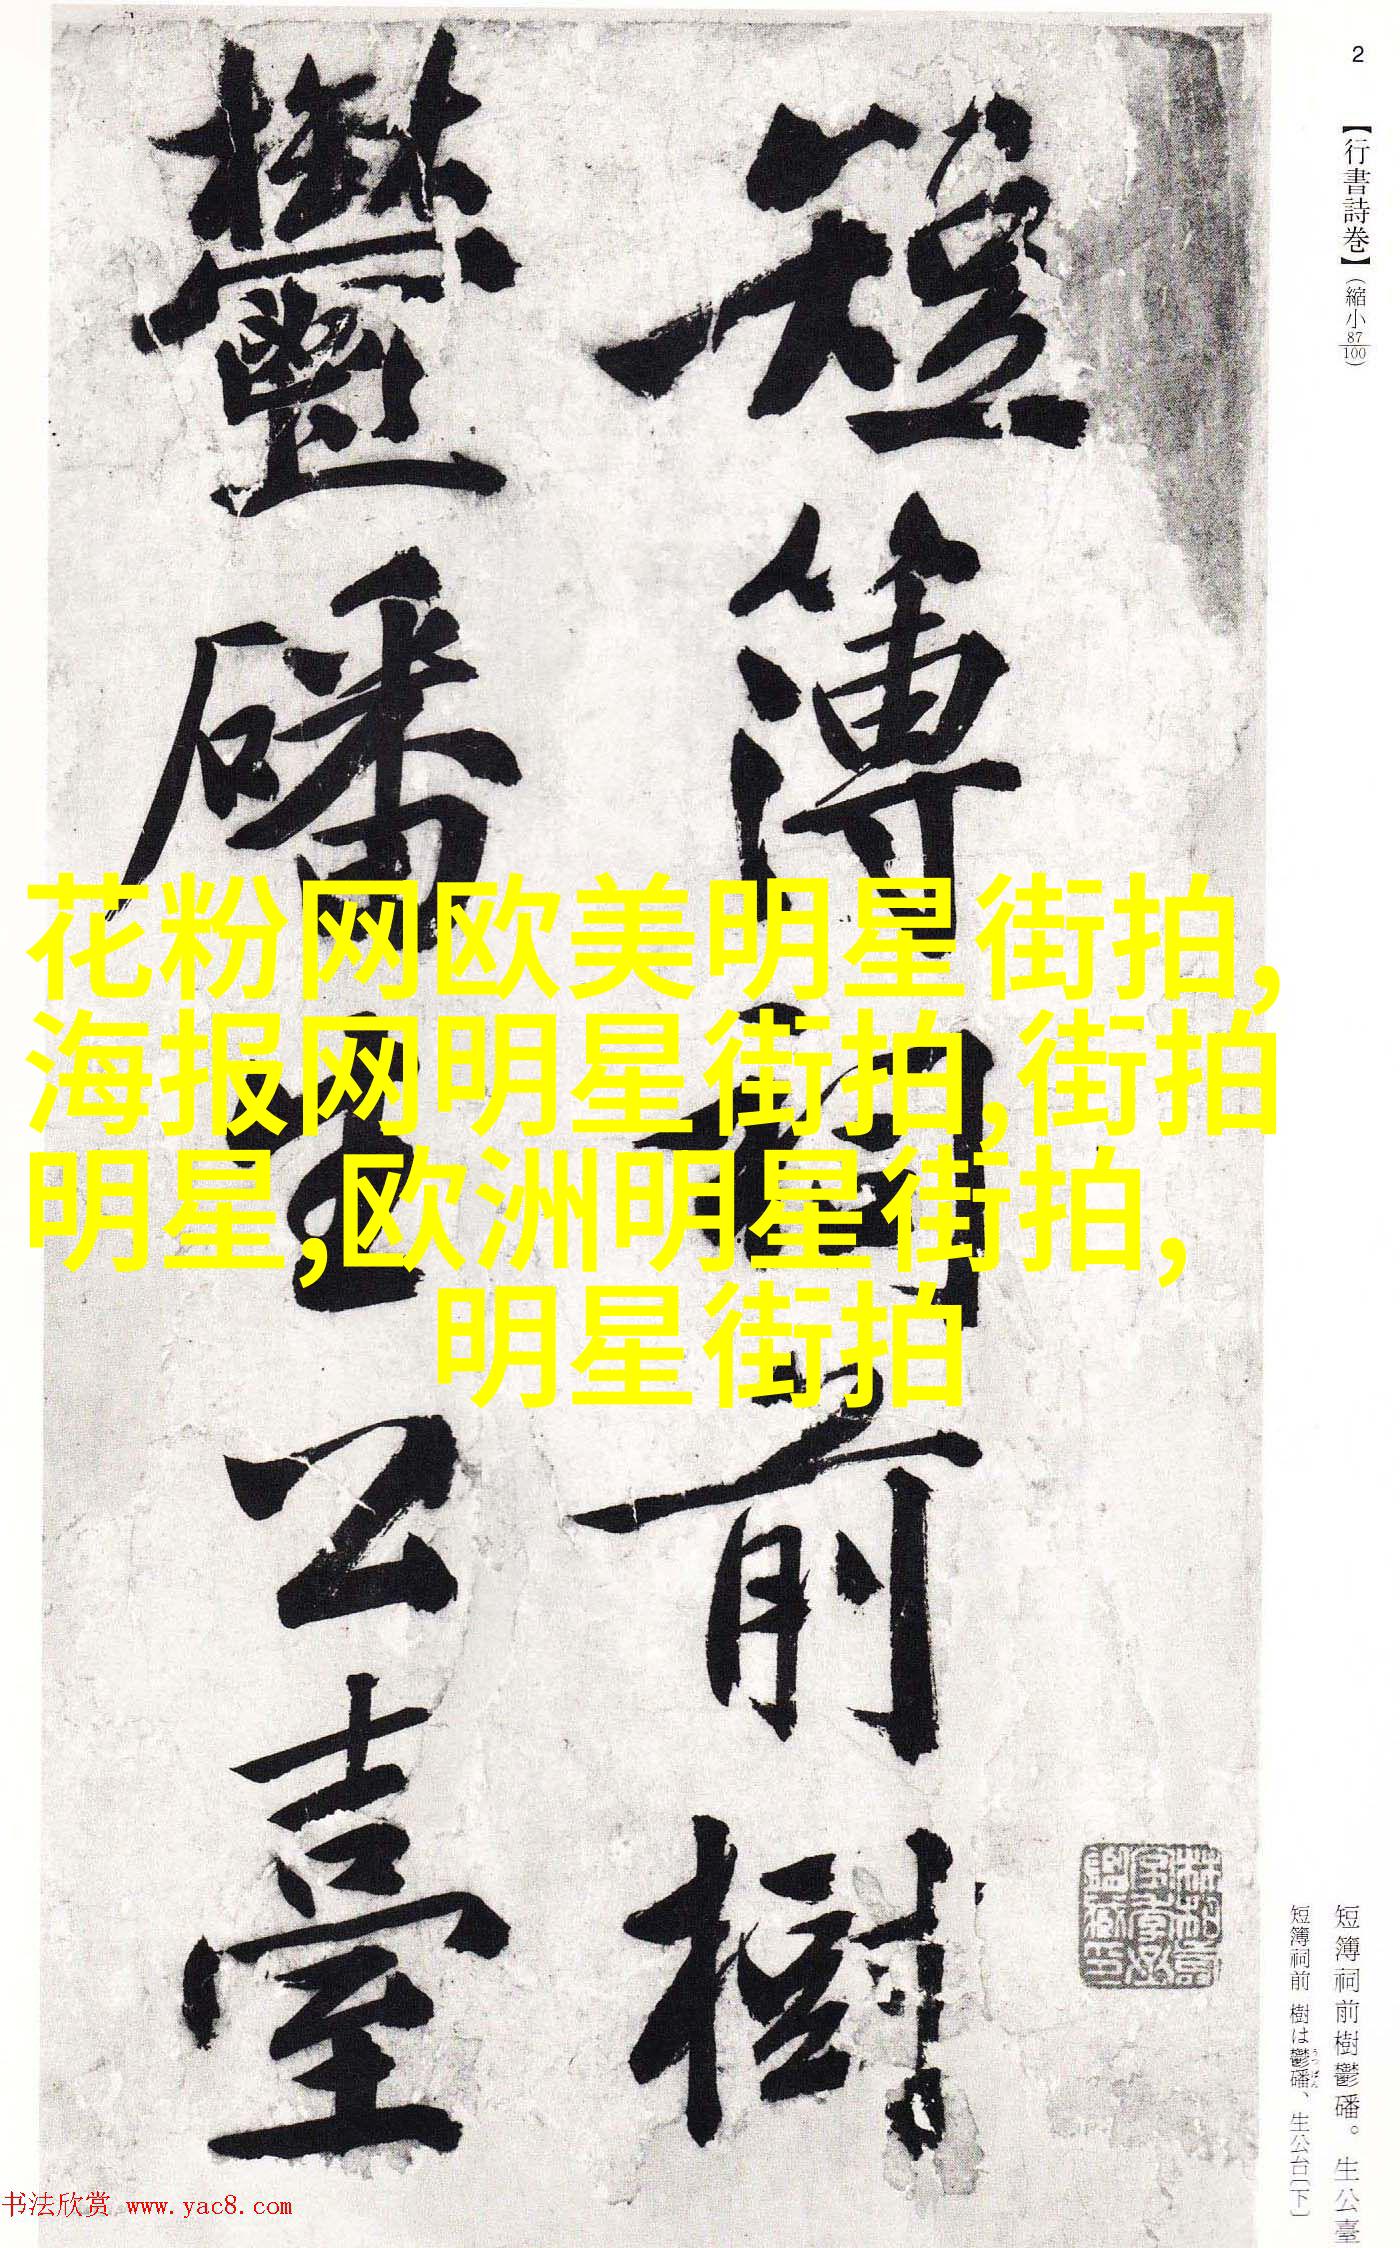 2
【行書詩巻】(縮小87/100)
短簿祠前樹
鬱磻生公臺
花粉网欧美明星街拍,
海报网明星街拍,街拍
明星,欧洲明星街拍,
明星街拍
短簿祠前樹鬱磻。生公臺
短簿祠前 樹は鬱磻、生公台〔下〕
うつばん
书法欣赏 www.yac8.com